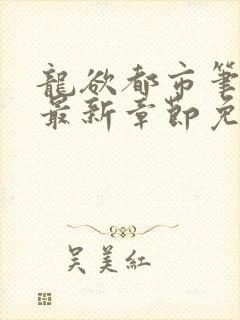 龍欲都市筆
最新章節免
吴美紅